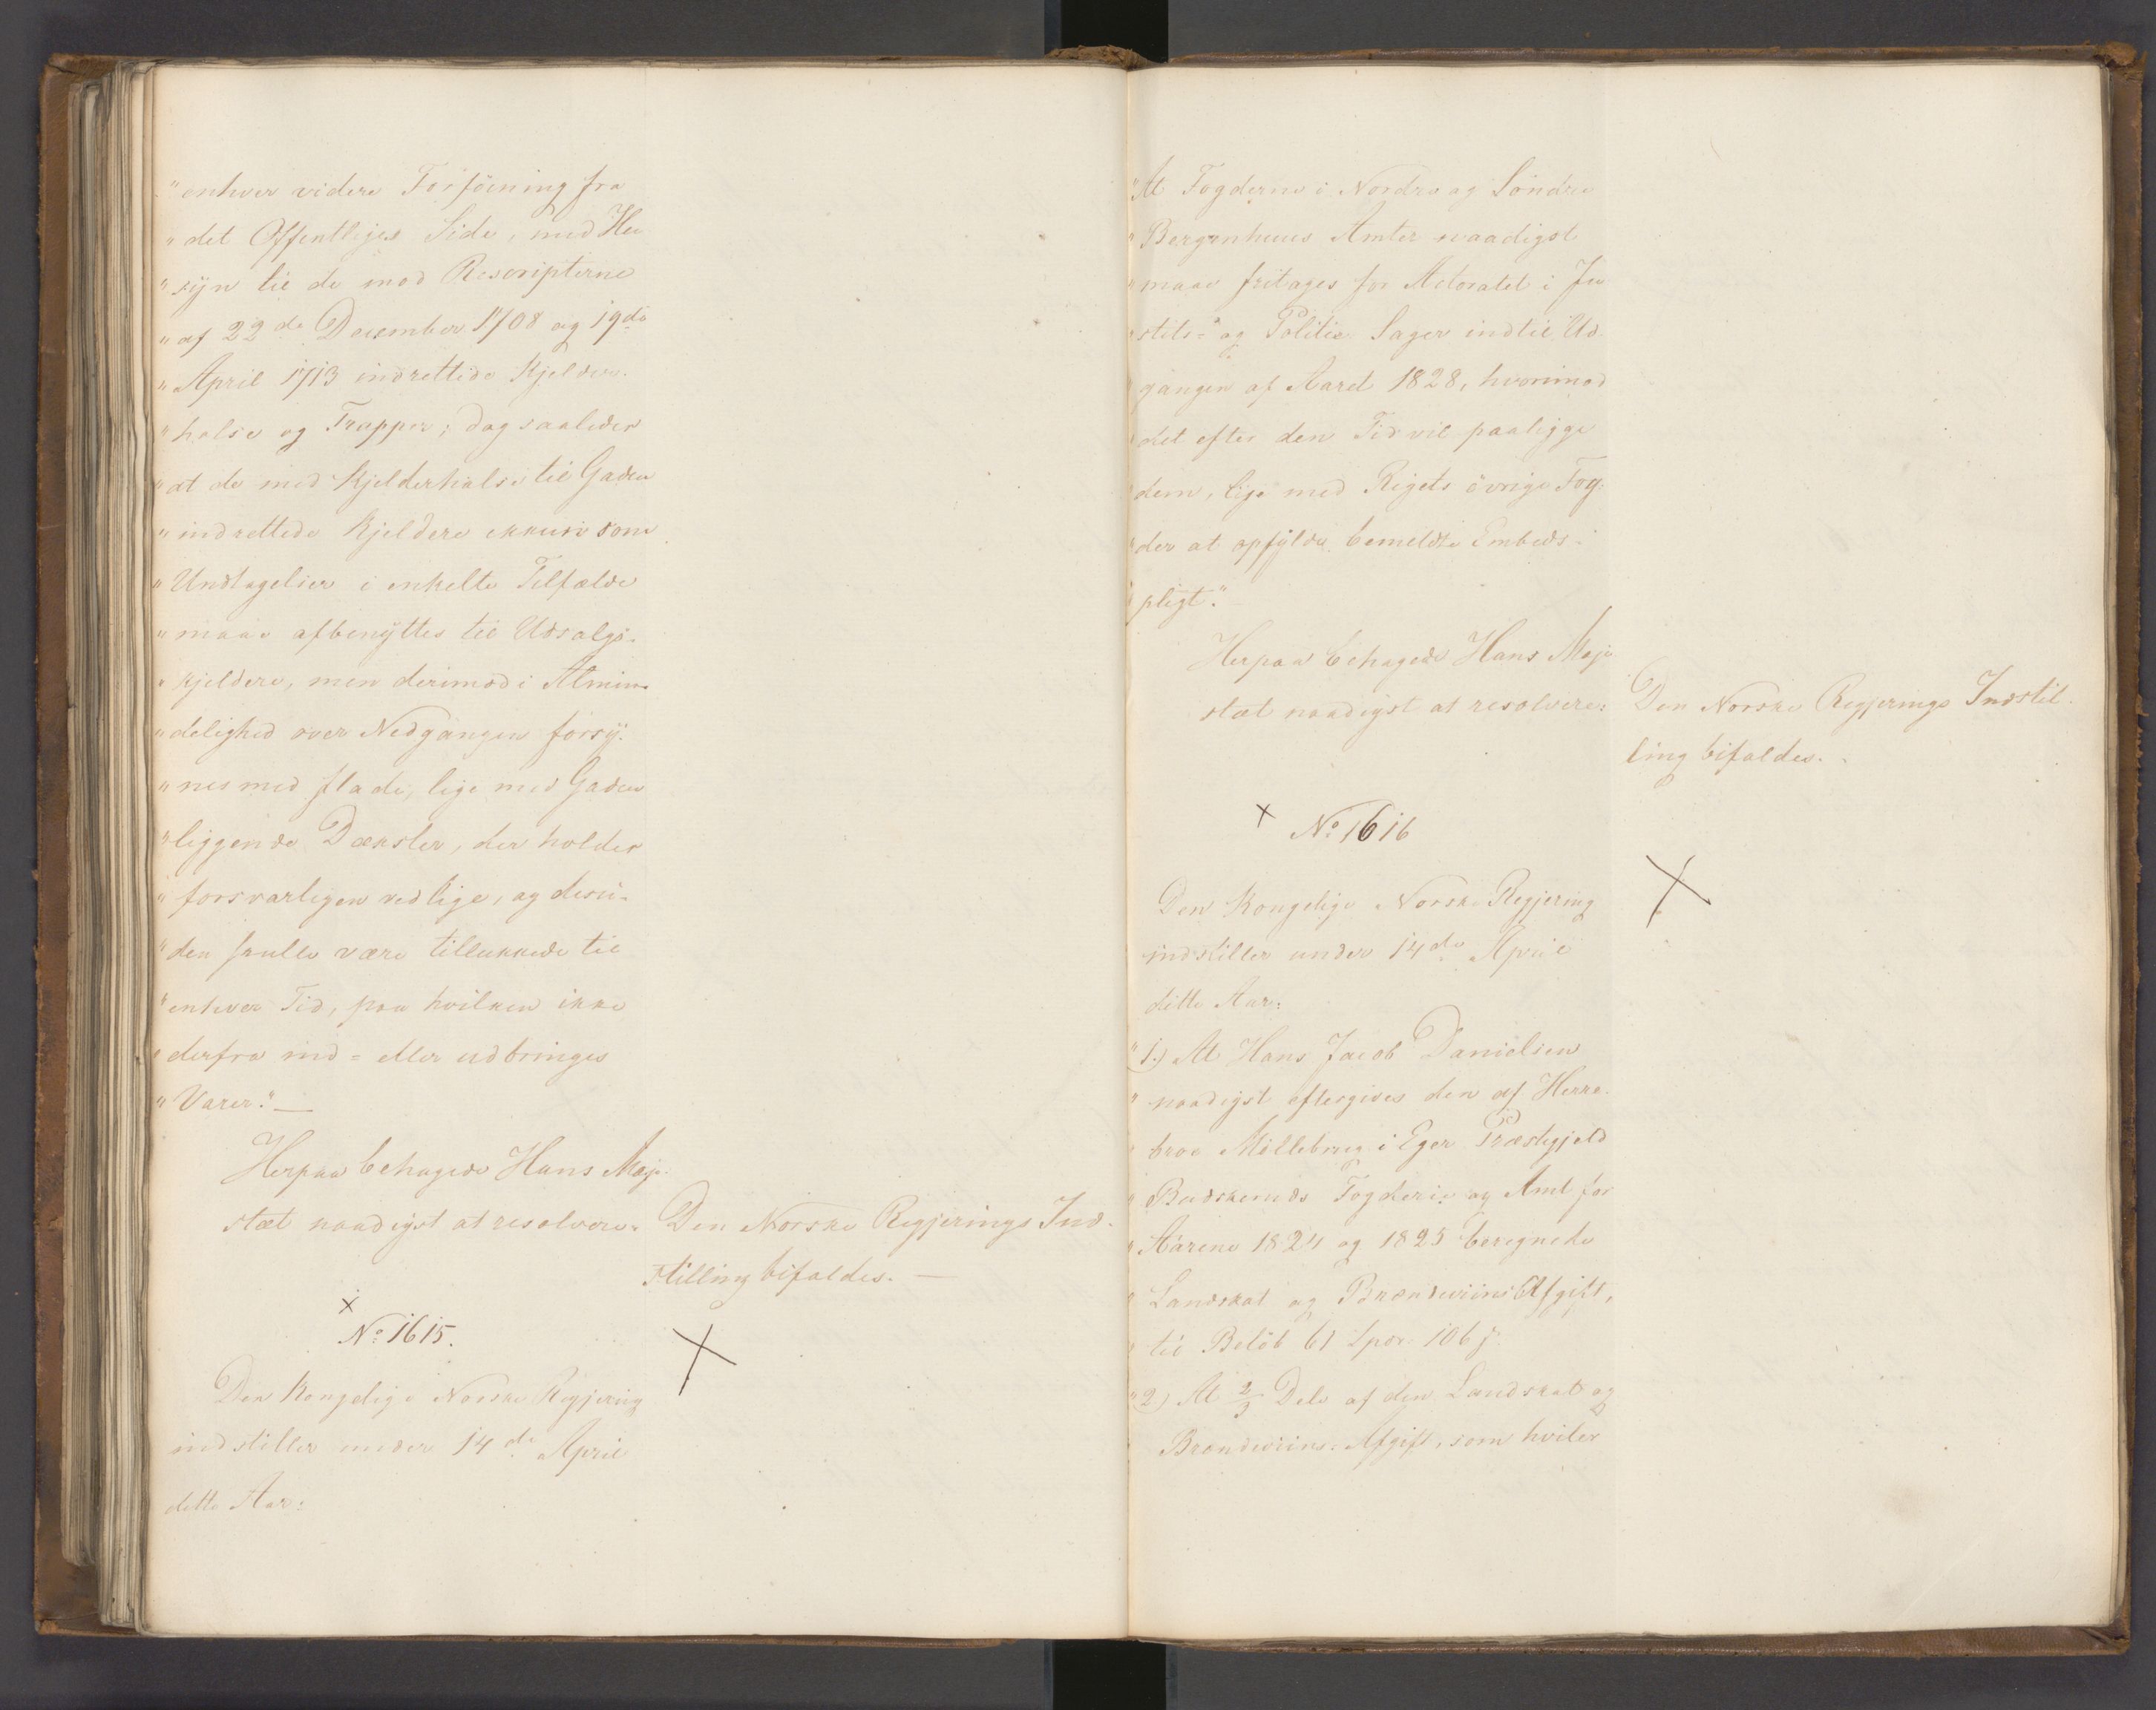 "enhver videre Forföining fra
"det Offentliges Side, med Hen
"syn til de mod Rescripterne
"af 22de December 1708 og 19de
"April 1713 indrettede Kjelder-
"halse og Trapper; dog saaledes
"at de med Kjelderhalse til Gaden
"indrettede Kjeldere ekkun som
"Undtagelser i enkelte Tilfælde
"maae afbenyttes til Udsalgs-
"kjeldere, men derimod i Almin-
"delighed over Nedgangen forsy-
"nes med flade, lige med Gaden
"liggende Dæksler, der holdes
"forsvarligen ved lige, og desu-
"den skulle være tillukkede til
"enhver Tid, paa hvilken ikke
"derfra ind- eller udbringes
"Varer." —
Herpaa behagede Hans Maje-
stæt naadigst at resolvere:
Den Norske Regjerings Ind-
stilling bifaldes. —
No 1615.
Den Kongelige Norske Regjering
indstiller under 14de April
dette Aar:
"At Fogderne i Nordre og Söndre
"Bergenhuus Amter naadigst
"maae fritages for Actoratet i Ju
"stits- og Politie Sager indtil Ud-
"gangen af Aaret 1828, hvorimod
"det efter den Tid vil paaligge
"dem, lige med Rigets övrige Fog-
"der at opfylde bemeldte Embeds-
"pligt."
Herpaa behagede Hans Maje-
stæt naadigst at resolvere:
Den Norske Regjerings Indstil-
ling bifaldes.
No 1616
Den Kongelige Norske Regjering
indstiller under 14de April
dette Aar:
"1.) At Hans Jacob Danielsen
"naadigst eftergives den af Herre-
"broe Möllebrug i Eger Præstegjeld
"Budskeruds Fogderie og Amt for
"Aarene 1824 og 1825 beregnede
"Landskat og Brændeviins Afgift,
"til Belöb 61 Spdr 106 ß
"2) At 2/3 Dele af den Landskat og
Brændeviins-Afgift, som hviler